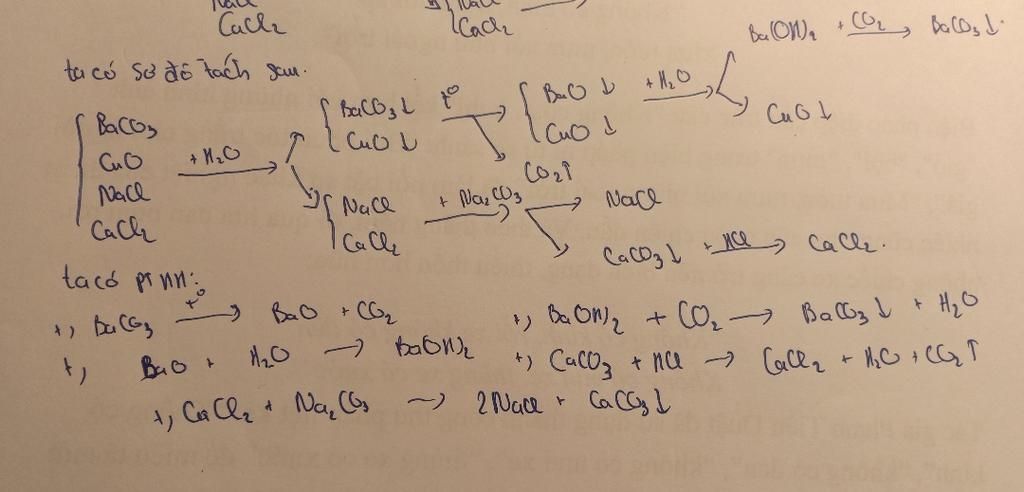 CaCl₂ CaCl₂
Ba(OH)₂ + CO₂ → BaCO₃↓
ta có sơ đồ tách sau.
BaCO₃ BaCO₃↓ t⁰ BaO ↓ +H₂O
CuO +H₂O CuO ↓ CuO ↓ CuO ↓
CO₂↑
NaCl NaCl + Na₂CO₃ NaCl
CaCl₂ CaCl₂ CaCO₃↓ +HCl → CaCl₂
ta có PTHH:
+, BaCO₃ t⁰→ BaO + CO₂ +, Ba(OH)₂ + CO₂ → BaCO₃↓ + H₂O
+, BaO + H₂O → Ba(OH)₂ +, CaCO₃ + HCl → CaCl₂ + H₂O + CO₂↑
+, CaCl₂ + Na₂CO₃ → 2NaCl + CaCO₃↓